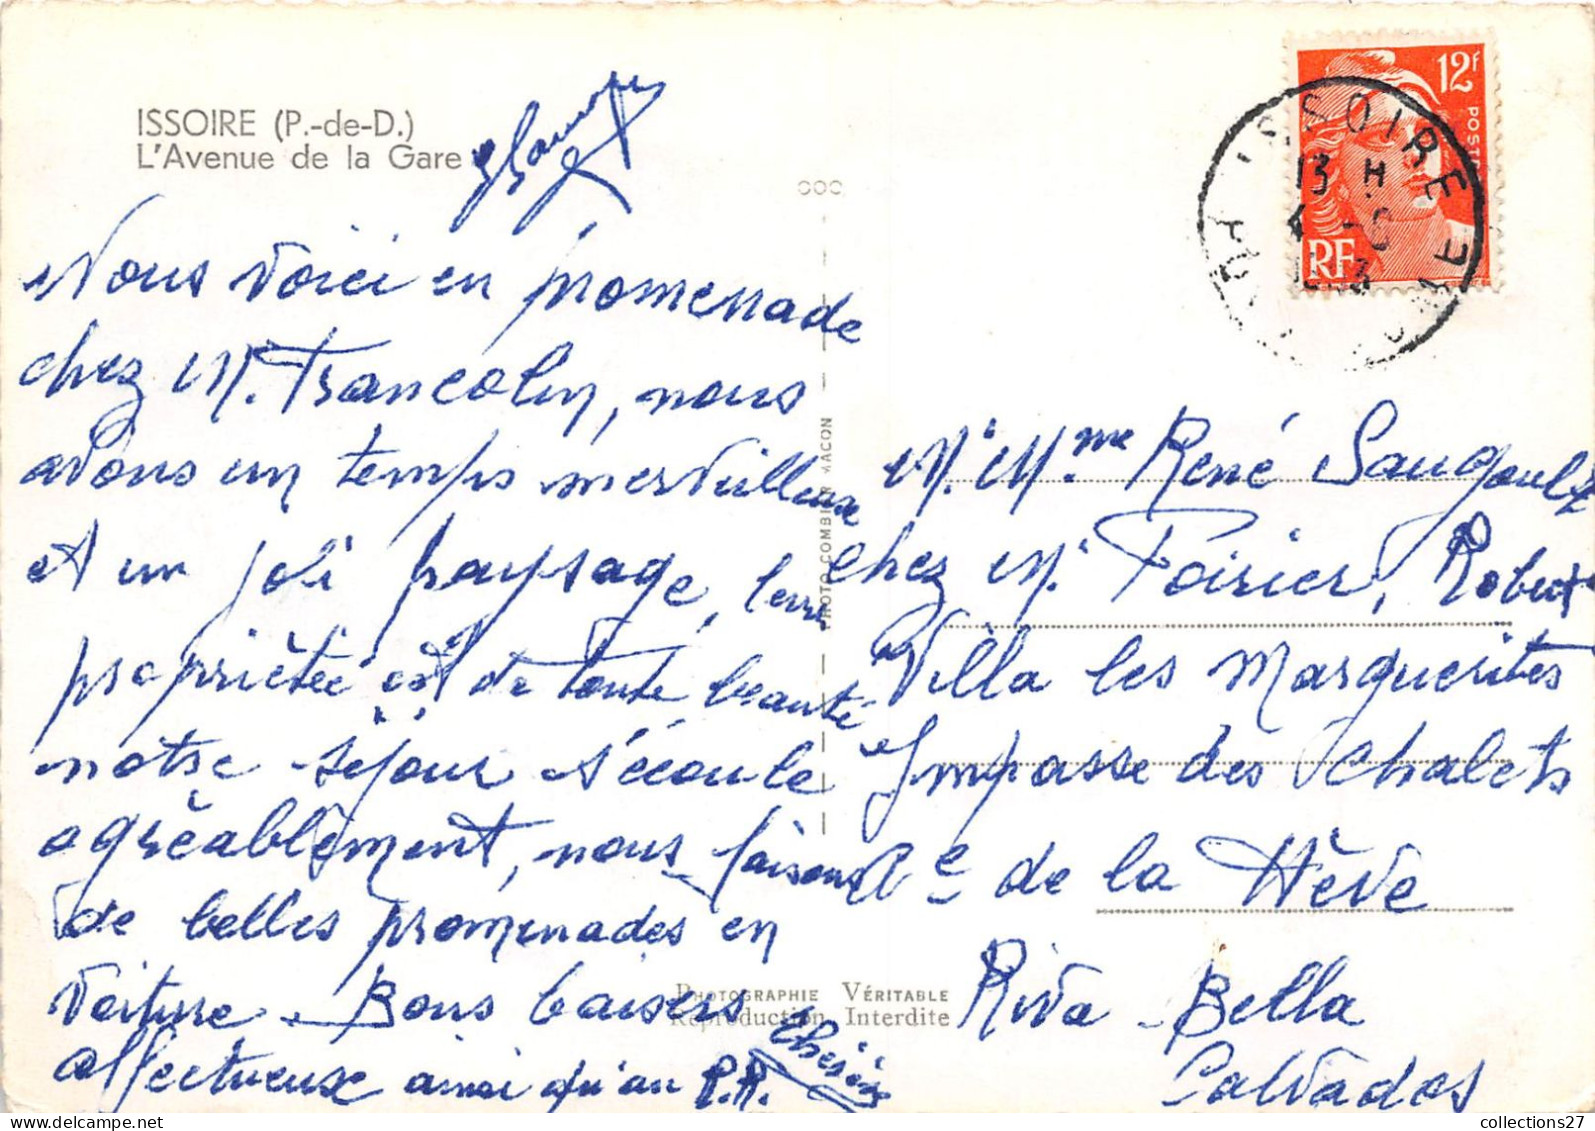 ISSOIRE (P.-de-D.)
L'Avenue de la Gare
Nous voici en promenade
chez M. Francolin, nous
avons un temps merveilleux
et un joli paysage, leur
propriétée est de toute beauté
notre séjour s'écoule
agréablement, nous faisons
de belles promenades en
voiture. Bons baisers
affectueux ainsi qu'au P.R.
PHOTO COMBIER MACON
PHOTOGRAPHIE VÉRITABLE
Reproduction Interdite
12f
POSTES
RF
ISSOIRE
13 H
M. Mme René Saugoult
chez M. Poirier, Robert
Villa les Marguerites
Impasse des Chalets
Re de la Hève
Riva-Bella
Calvados
collections27